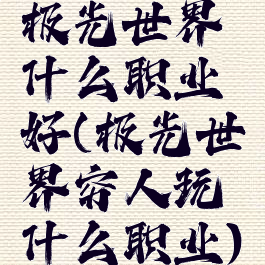 极光世界
什么职业
好(极光世
界穷人玩
什么职业)